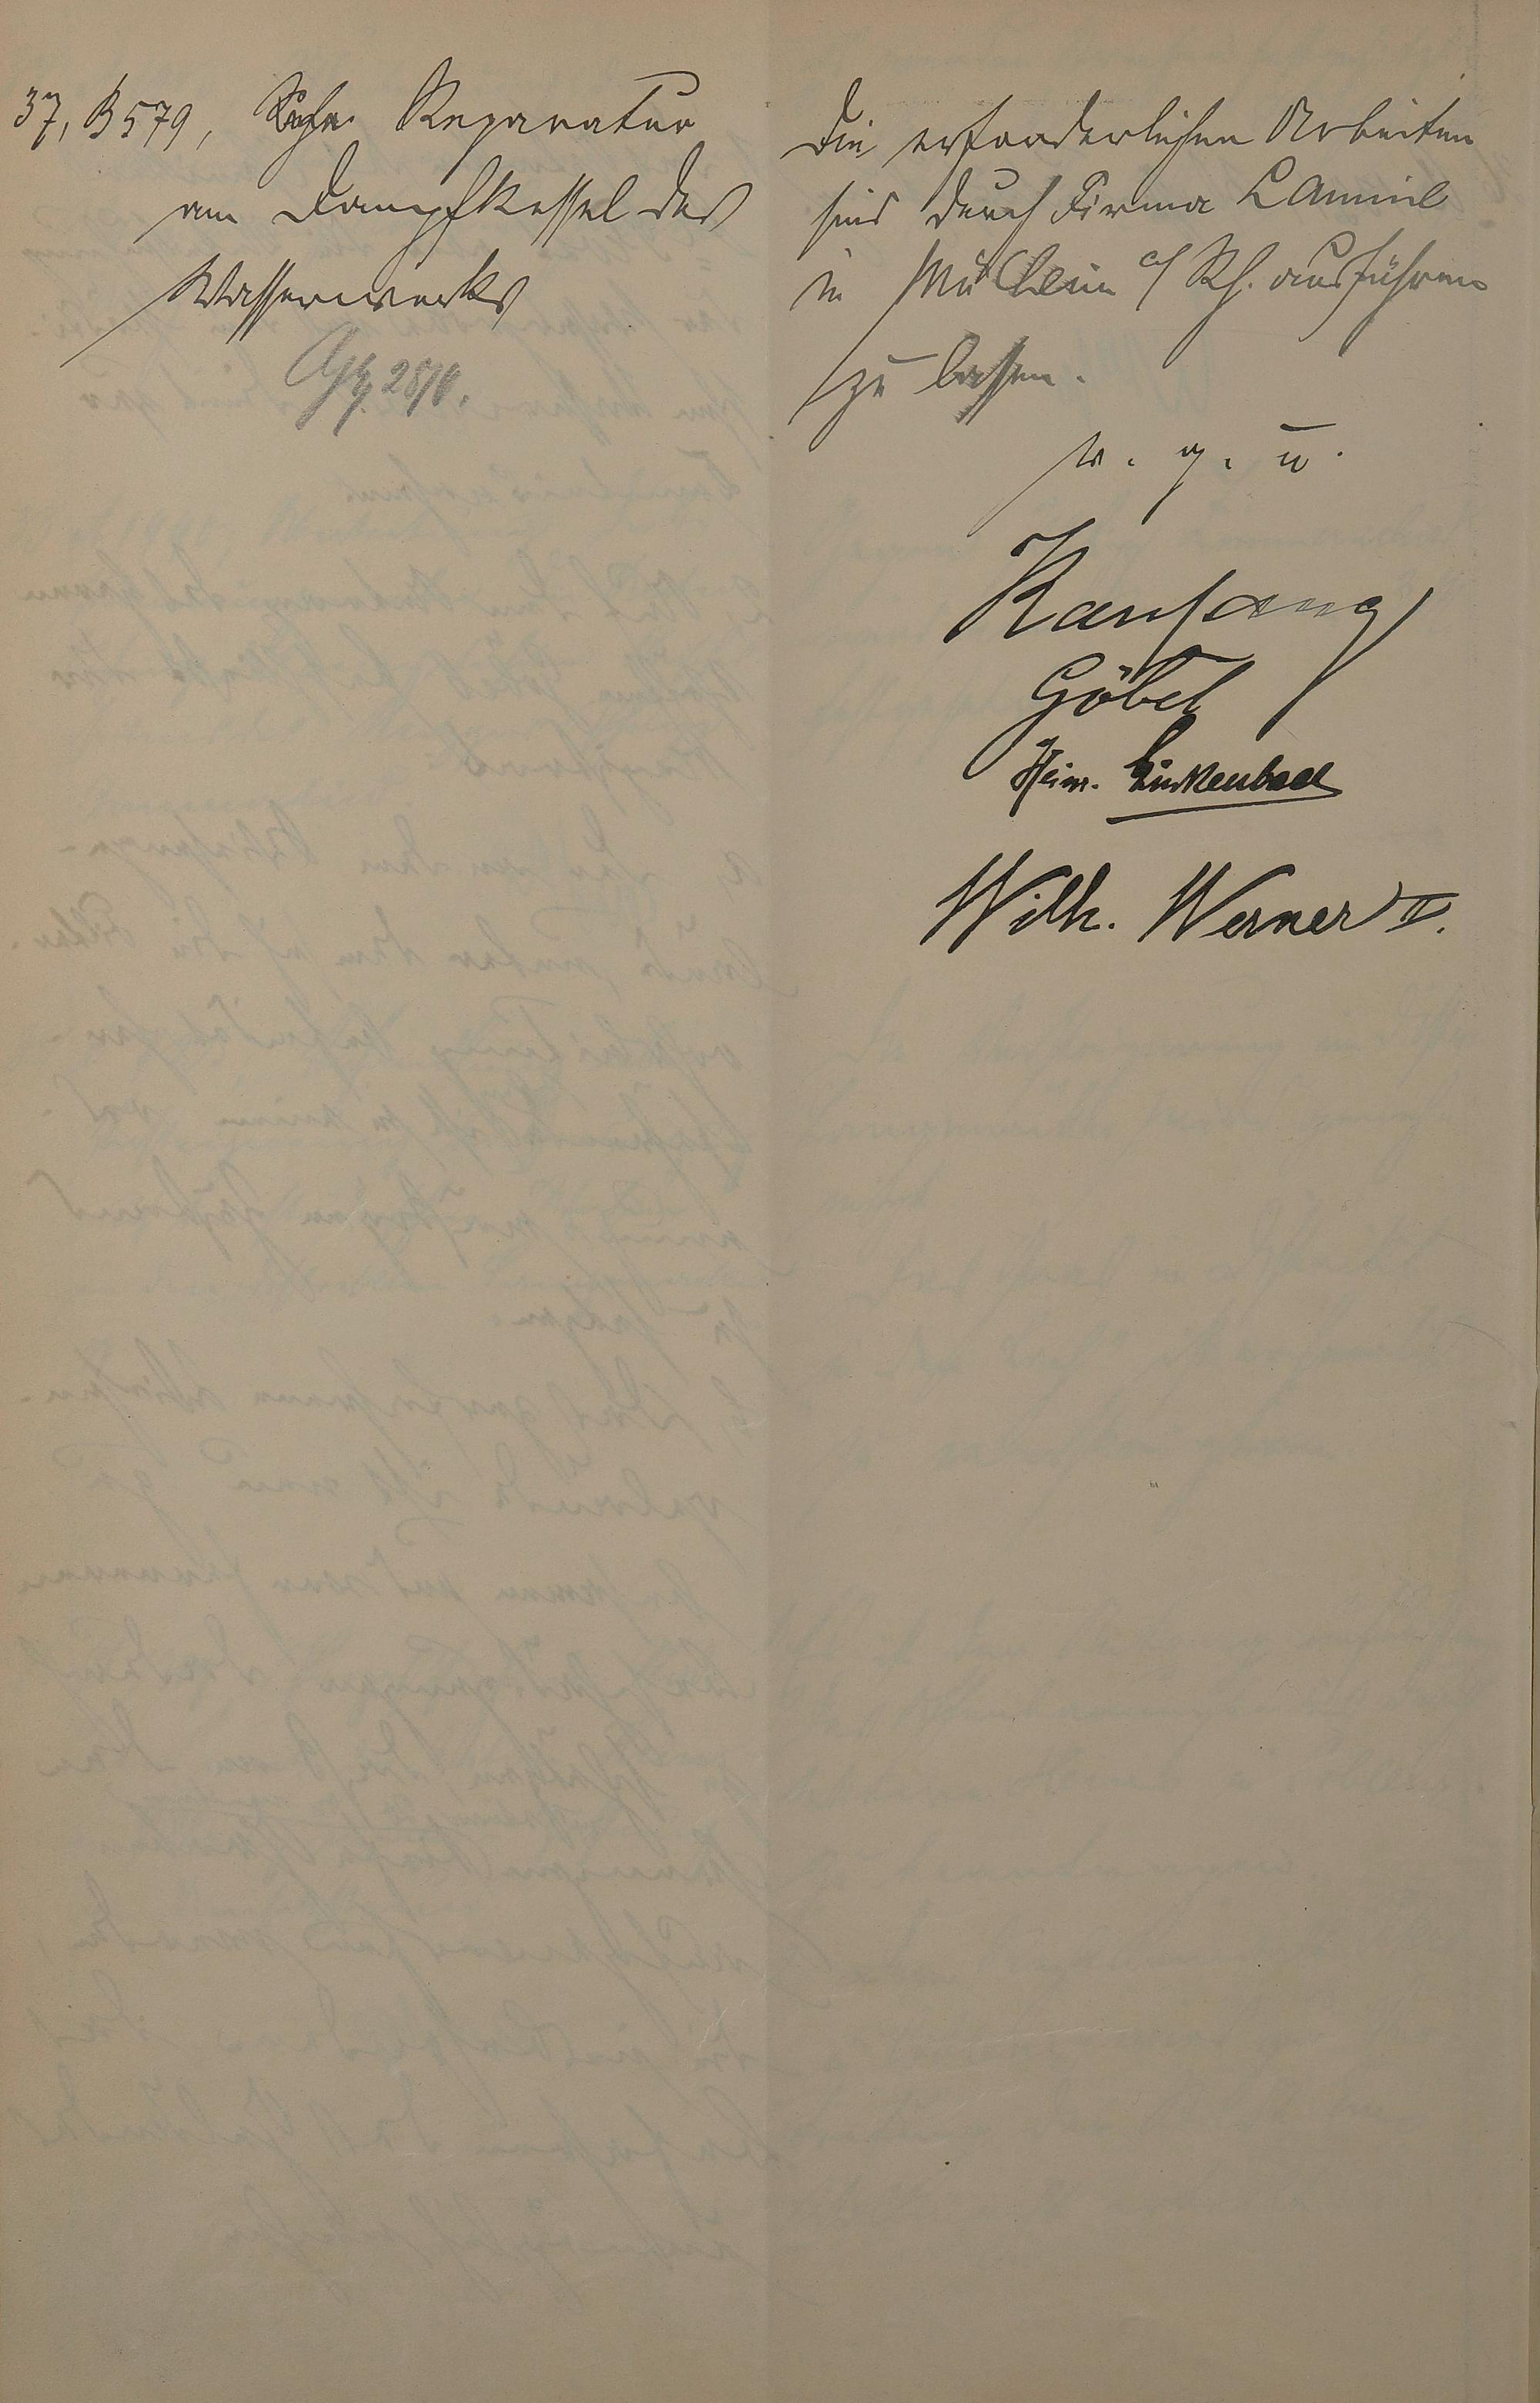 37, B 579, Reparatur
am Dampfkessel des
Wasserwerks
28/8.
Die erforderlichen Arbeiten
sind durch Firma
in Mülheim a/Rh. ausführen
zu lassen.
v. g. u.
Göbel
Heinr. Linkenbach
Wilh. Werner II.